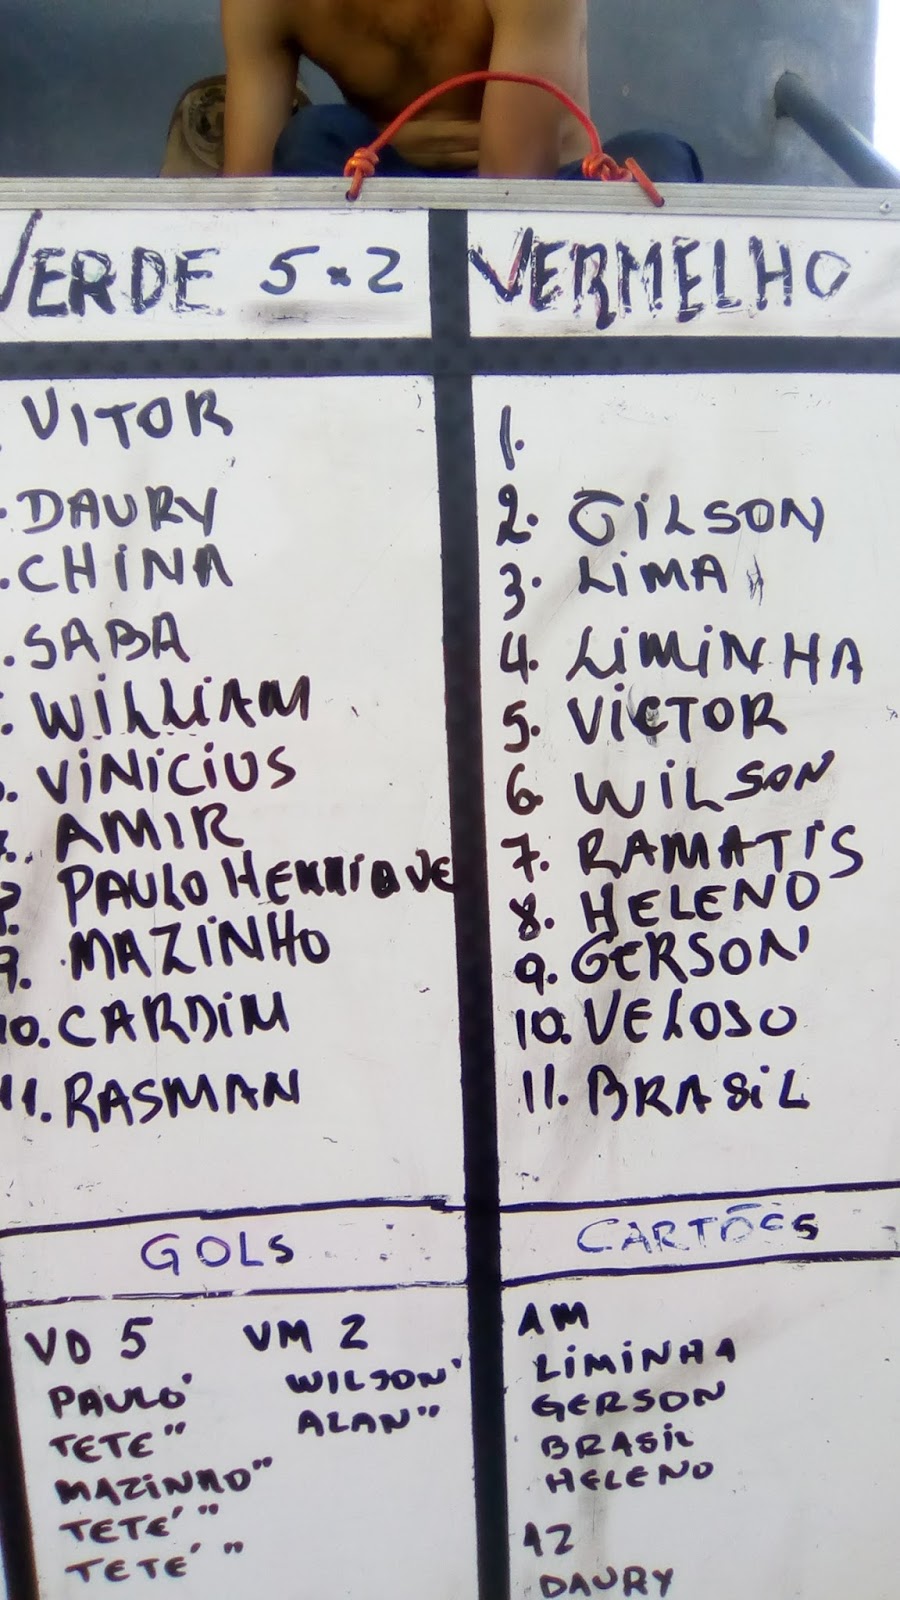 VERDE 5x2
VITOR
DAURY
CHINA
SABA
WILLIAM
VINICIUS
AMIR
PAULO HENRIQUE
9. MAZINHO
10. CARDIM
11. RASMAN
VERMELHO
1.
2. GILSON
3. LIMA
4. LIMINHA
5. VICTOR
6. WILSON
7. RAMATIS
8. HELENO
9. GERSON
10. VELOSO
11. BRASIL
GOLS
VD 5
PAULO'
TETE"
MAZINHO"
TETE' "
TETE' "
VM 2
WILSON'
ALAN"
CARTÕES
AM
LIMINHA
GERSON
BRASIL
HELENO
AZ
DAURY